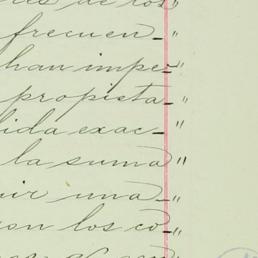 res de los "
frecuen- "
han impe- "
propista- "
lida exac- "
la suma "
uir una- "
con los co- "